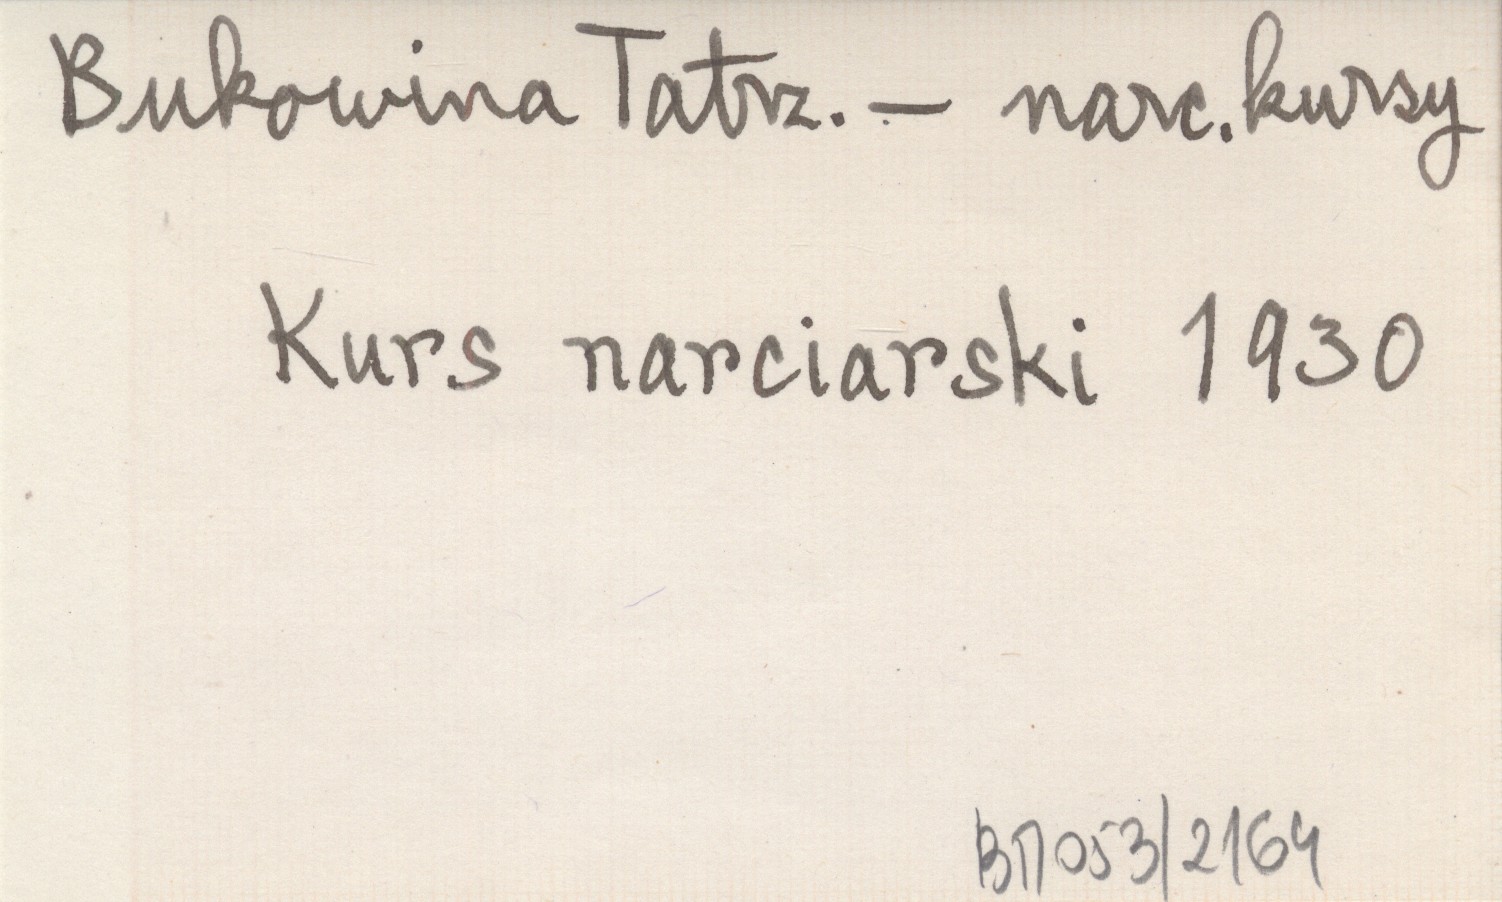 Bukowina Tatrz. – narc. kursy
Kurs narciarski 1930
BП053/2164